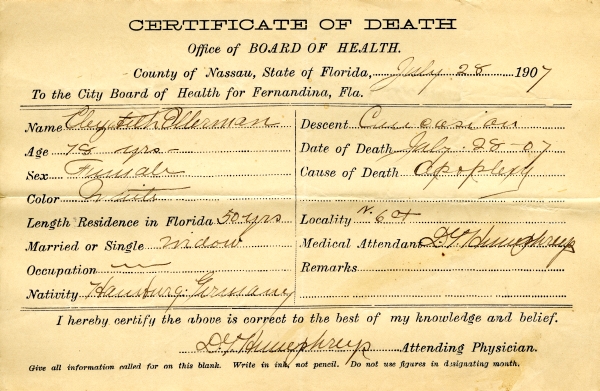 CERTIFICATE OF DEATH
Office of BOARD OF HEALTH.
County of Nassau, State of Florida, July 28 1907
To the City Board of Health for Fernandina, Fla.
Name Elizabeth Ellerman
Age 78 yrs
Sex Female
Color White
Length Residence in Florida 50 yrs
Married or Single widow
Occupation
Nativity Hamburg Germany
Descent Caucasian
Date of Death July 28-07
Cause of Death Apoplexy
Locality N. 6 st
Medical Attendant D. G. Humphreys
Remarks
I hereby certify the above is correct to the best of my knowledge and belief.
D. G. Humphreys Attending Physician.
Give all information called for on this blank. Write in ink, not pencil. Do not use figures in designating month.